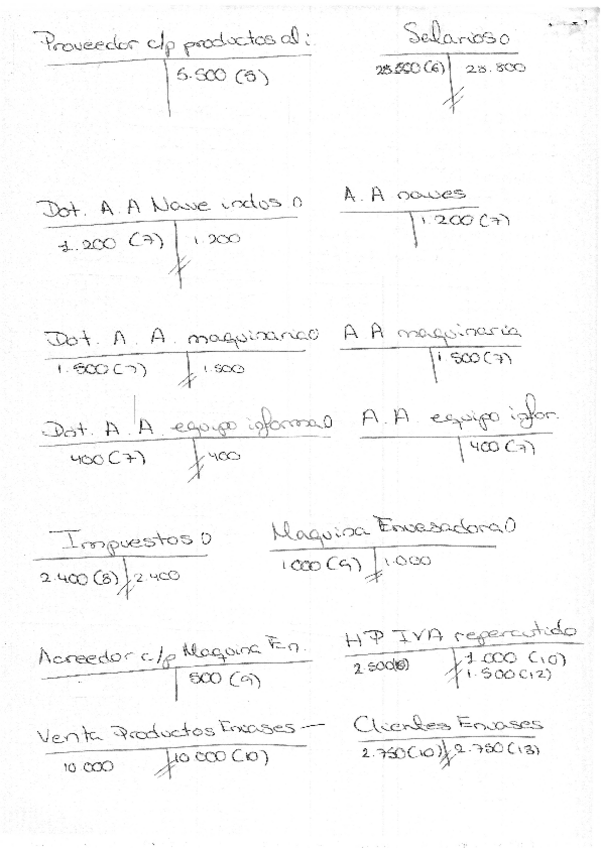 Proveedor c/p productos al:
Salarios 0
5.500 (5)
28.800 (6) 28.800
Dot. A.A Nave indus 0
A.A naves
1.200 (7) 1.200
1.200 (7)
Dot. A. A. maquinaria 0
A A maquinaria
1.500 (7) 1.500
1 500 (7)
Dot. A. A. equipo informa 0
A.A. equipo infor.
400 (7) 400
400 (7)
Impuestos 0
Maquina Envasadora 0
2.400 (8) 2.400
1000 (9) 1.000
Acreedor c/p Maquina En.
HP IVA repercutido
500 (9)
2 500 1.000 (10)
1.500 (12)
Venta Productos Envases —
Clientes Envases
10 000 10 000 (10)
2.750 (10) 2.750 (13)